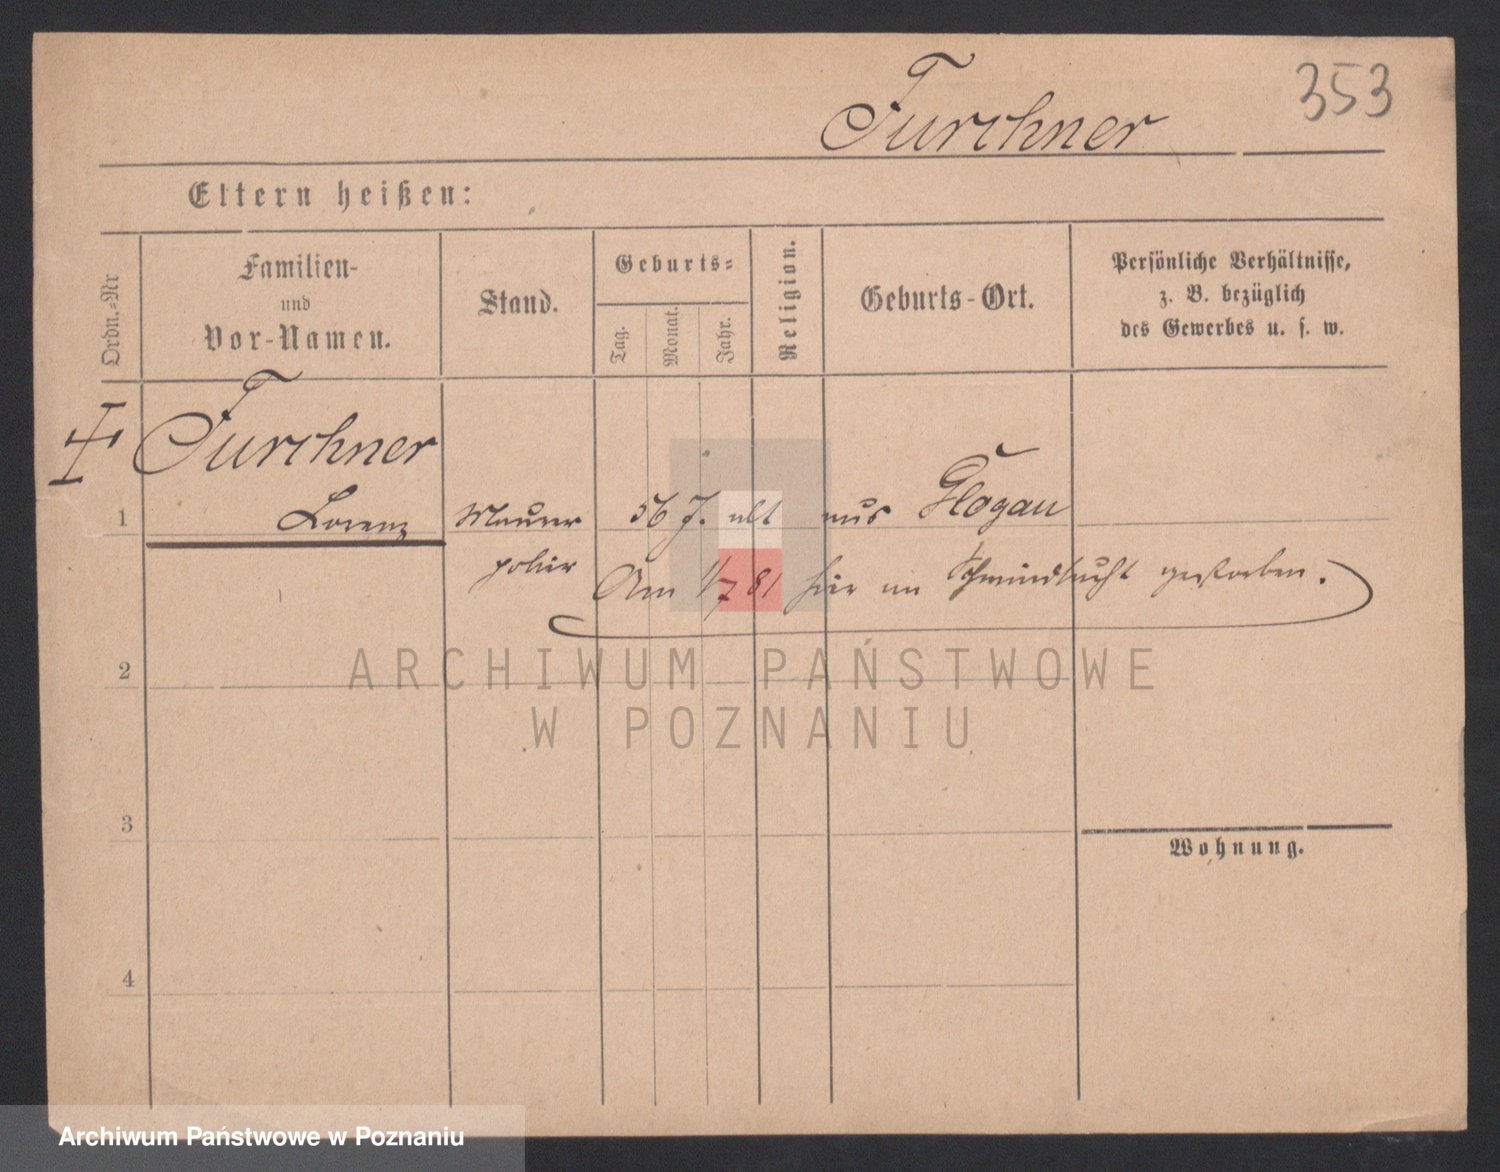 353
Furchner
Eltern heißen:
Ordn.=Nr
Familien-
und
Vor-Namen.
Stand.
Geburts=
Tag.
Monat.
Jahr.
Religion.
Geburts-Ort.
Persönliche Verhältnisse,
z. B. bezüglich
des Gewerbes u. s. w.
Furchner
1 Lorenz Maurer 56 J. alt aus Glogau
polier Am 1/7 81 hier an Schwindsucht gestorben.
ARCHIWUM PAŃSTWOWE
2
W POZNANIU
3
Wohnung.
4
Archiwum Państwowe w Poznaniu